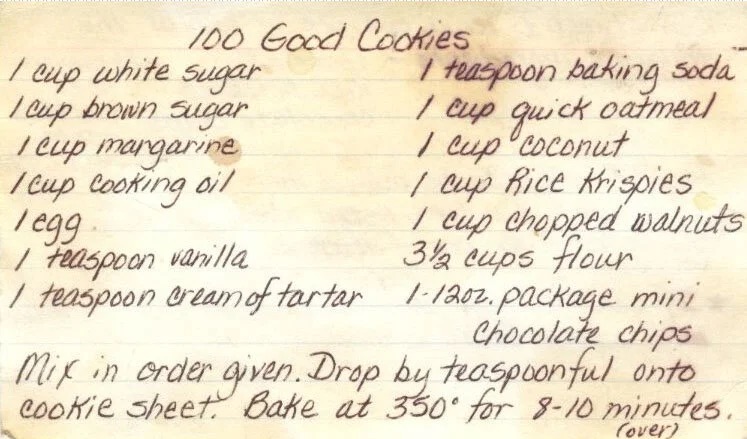 100 Good Cookies
1 cup white sugar
1 cup brown sugar
1 cup margarine
1 cup cooking oil
1 egg
1 teaspoon vanilla
1 teaspoon cream of tartar
1 teaspoon baking soda
1 cup quick oatmeal
1 cup coconut
1 cup Rice Krispies
1 cup chopped walnuts
3 1/2 cups flour
1-12oz. package mini
chocolate chips
Mix in order given. Drop by teaspoonful onto
cookie sheet. Bake at 350° for 8-10 minutes.
(over)